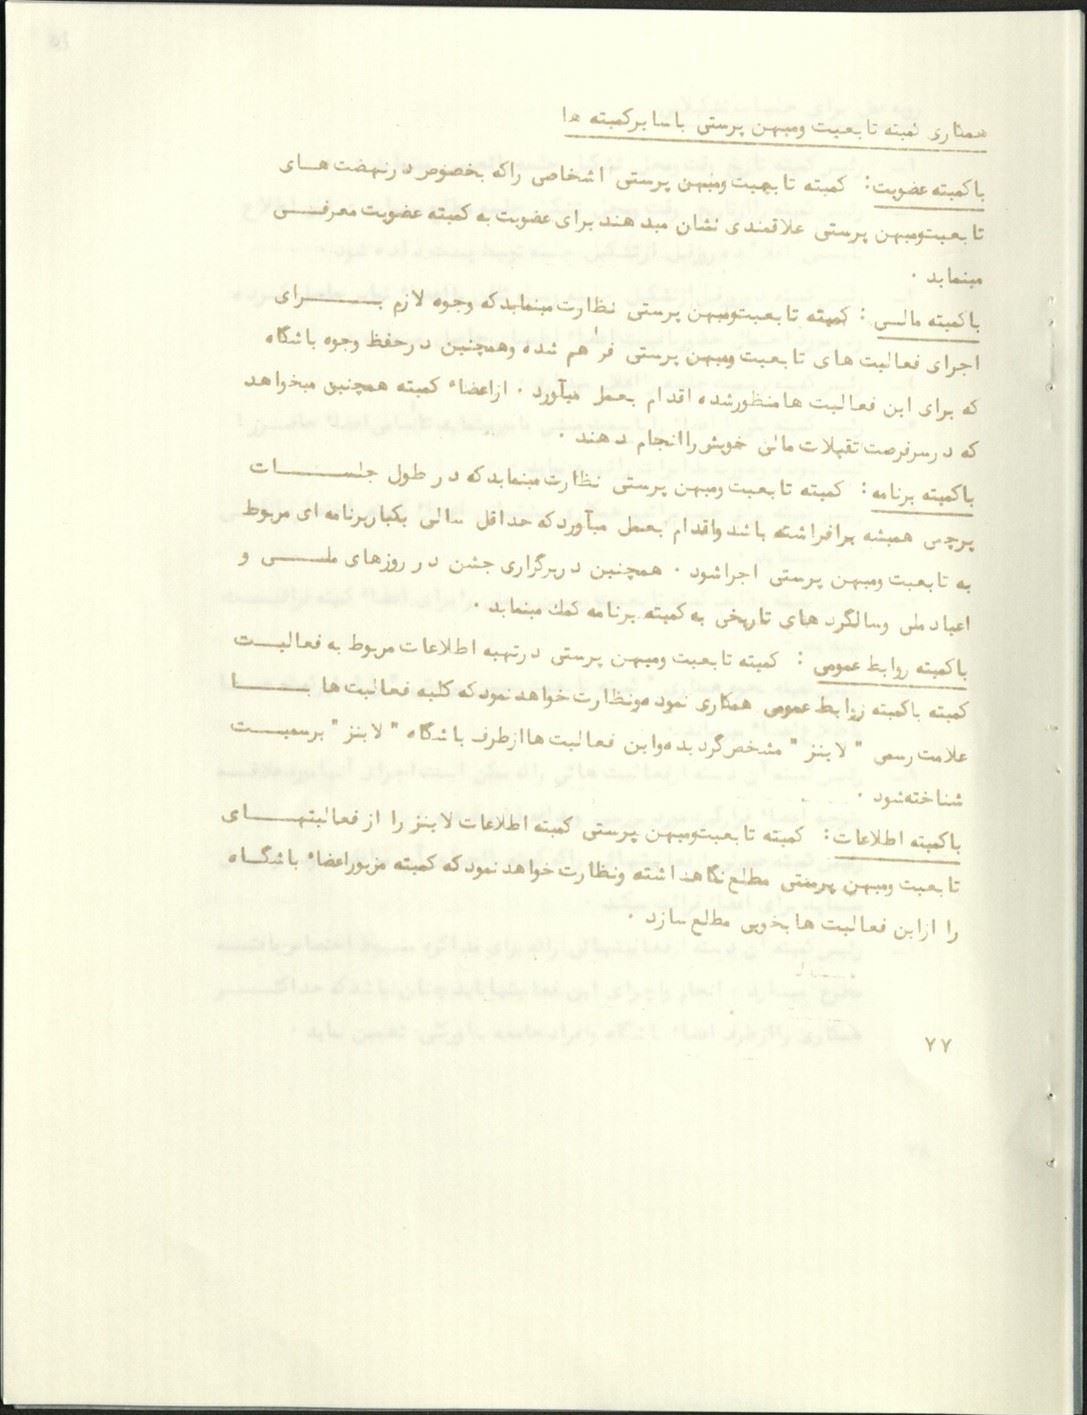 همکاری کمیته تابعیت ومیهن پرستی باسایرکمیته ها
باکمیته عضویت: کمیته تابعیت ومیهن پرستی اشخاصی راکه بخصوص درنهضت هـای
تابعیت‌ومیهن پرستی علاقمندی نشان میدهند برای عضویت به کمیته عضویت معرفـــی
مینماید .
باکمیته مالـی : کمیته تابعیت‌ومیهن پرستی نظارت مینماید که وجوه لازم بـــرای
اجرای فعالیت های تابعیت ومیهن پرستی فراهم شده وهمچنین درحفظ وجوه باشگاه
که برای این فعالیت هامنظورشده اقدام بعمل میآورد . ازاعضاء کمیته همچنین میخواهد
که درسرفرصت تقبلات مالی خویش راانجام دهند .
باکمیته برنامه : کمیته تابعیت ومیهن پرستی نظارت مینماید که در طول جلســـات
پرچم همیشه برافراشته باشد واقدام بعمل میآوردکه حداقل سالی یکباربرنامه ای مربوط
به تابعیت ومیهن پرستی اجراشود . همچنین دربرگزاری جشن در روزهای ملـــی و
اعیاد ملی وسالگرد های تاریخی به کمیته برنامه کمك مینماید .
باکمیته روابط عمومی : کمیته تابعیت ومیهن پرستی درتهیه اطلاعات مربوط به فعالیـت
کمیته باکمیته روابط عمومی همکاری نموده ونظارت خواهد نمود که کلیه فعالیت ها بـــا
علامت رسمی " لاینز " مشخص گردیده واین فعالیت هاازطرف باشگاه " لاینز " برسمیـــت
شناخته شود .
باکمیته اطلاعات : کمیته تابعیت‌ومیهن پرستی کمیته اطلاعات لاینز را از فعالیتهـــای
تابعیت ومیهن پرستی مطلع نگاهداشته ونظارت خواهد نمود که کمیته مزبوراعضاء باشگـاه
را ازاین فعالیت ها بخوبی مطلع سازد .
۷۷